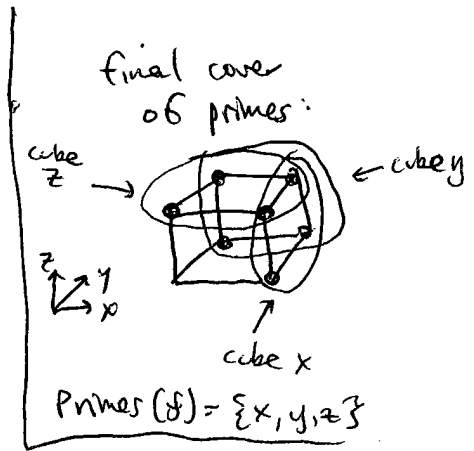 final cover
of primes:
cube
z
cube y
z
y
x
cube x
Primes(f) = {x, y, z}